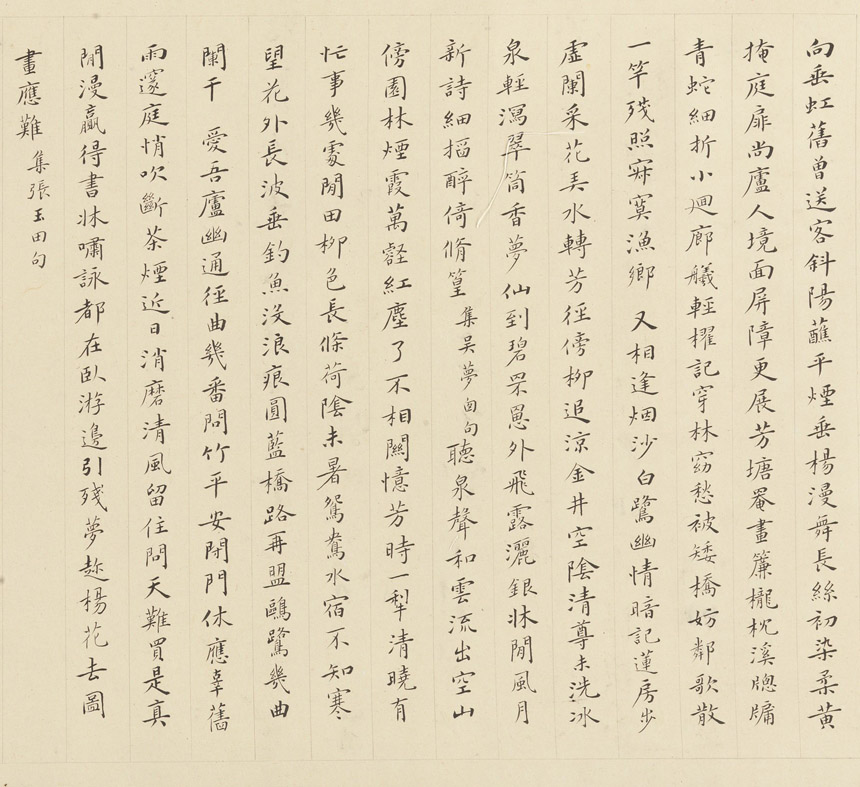 向垂虹舊曾送客斜陽蘸平煙垂楊漫舞長絲初染柔黃
掩庭扉尚廬人境面屏障更展芳塘罨畫簾櫳枕溪牎牖
青蛇細折小廻廊艤輕櫂記穿林窈愁被矮橋妨鄰歌散
一竿殘照寂寞漁鄉　又相逢烟沙白鷺幽情暗記蓮房步
虛闌采花弄水轉芳徑傍柳追涼金井空陰清尊未洗冰
泉輕瀉翠筒香夢仙到碧罘罳外飛露灑銀牀閒風月
新詩細搯醉倚脩篁 集吳夢囱句 聽泉聲和雲流出空山
傍園林煙霞萬壑紅塵了不相關憶芳時一犁清曉有
忙事幾處閒田柳色長條荷陰未暑鴛鴦水宿不知寒
望花外長波垂釣魚沒浪痕圓藍橋路再盟鷗鷺幾曲
闌干　愛吾廬幽通徑曲幾番問竹平安閉門休應辜舊
雨邃庭悄吹斷茶煙近日消磨清風留住問天難買是真
閒漫贏得書牀嘯詠都在臥游邊引殘夢趂楊花去圖
畫應難 集張玉田句